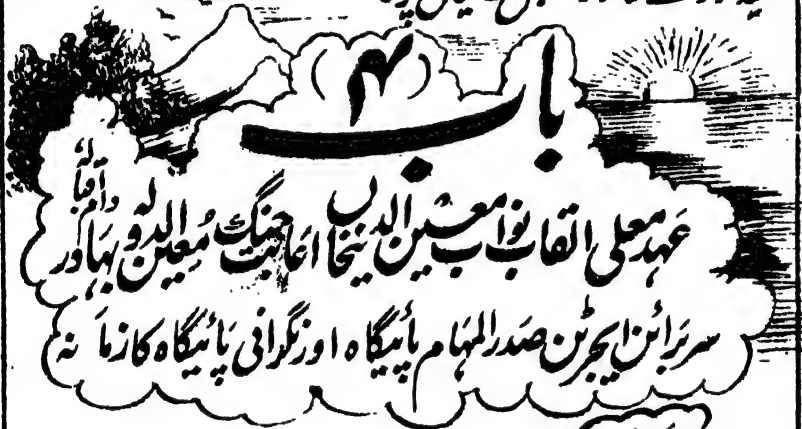 باب (۴)
عہد معلی القاب نواب معین الدین خاں اعانت جنگ معین الدولہ بہادر دام اقبالہ
سر برائن ایجرٹن صدر المہام پائیگاہ اور نگرانی پائیگاہ کا زمانہ